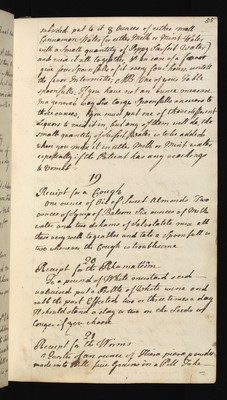 25
reduced put to it 8 ounces of either small
Cinnamon Water (or either Milk or Mint Water,
with a Small quantity of Poppy Surfeit Water)
and mix it all together, & in case of a
give four Spoonfuls of it every four hours untill
the fever Intermits; NB One of your Table
spoonfulls, if you have not an ounce measure
for general Six large Spoonfulls answers to
three ounces, you must put one of these different
liquors to mix it in, but any of them will do, the
small quantity of Surfeit Water is to be added
when you make it in either Milk or Mint water
especially if the Patient has any
to Vomit
19
Receipt for a Cough
One ounce of Oil of Sweet Almonds Two
ounces of Syrup of Balsom Six ounces of Milk
water and two drahams of Salvolatile mix all
these very well together and take a Spoonfull or
two whenever the Cough is troublesome
20
Receipt for the Rhumatism
To a pound of White mustard seed
unbruised put a Bottle of White wine and
rub the part Effected two or three times a day
It should stand a day or two on the seeds or
longer if you choose
21
Receipt for the Worms
a Quarter of an ounce of powder
made into Pills five Grains in a Pill Take